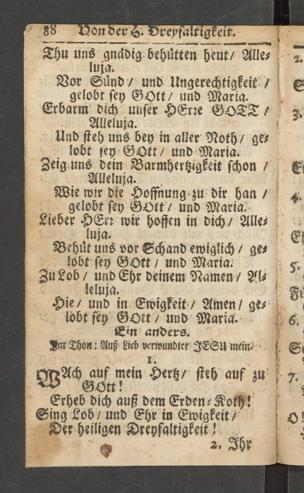 88 Von der H. Dreyfaltigkeit.
Thu uns gnädig behütten heut/ Alle-
luja.
Vor Sünd/ und Ungerechtigkeit/
gelobt sey GOtt/ und Maria.
Erbarm dich unser HErre GOTT/
Alleluja.
Und steh uns bey in aller Noth/ ge-
lobt sey GOtt/ und Maria.
Zeig uns dein Barmhertzigkeit schon/
Alleluja.
Wie wir die Hoffnung zu dir han/
gelobt sey GOtt/ und Maria.
Lieber HErr wir hoffen in dich/ Alle-
luja.
Behüt uns vor Schand ewiglich/ ge-
lobt sey GOtt/ und Maria.
Zu Lob/ und Ehr deinem Namen/ Al-
leluja.
Hie/ und in Ewigkeit/ Amen/ ge-
lobt sey GOtt/ und Maria.
Ein anders.
Im Thon: Auß Lieb verwundter JESU mein.
1.
WAch auf mein Hertz/ steh auf zu
GOtt!
Erheb dich auß dem Erden-Koth!
Sing Lob/ und Ehr in Ewigkeit/
Der heiligen Dreyfaltigkeit!
2. Ihr